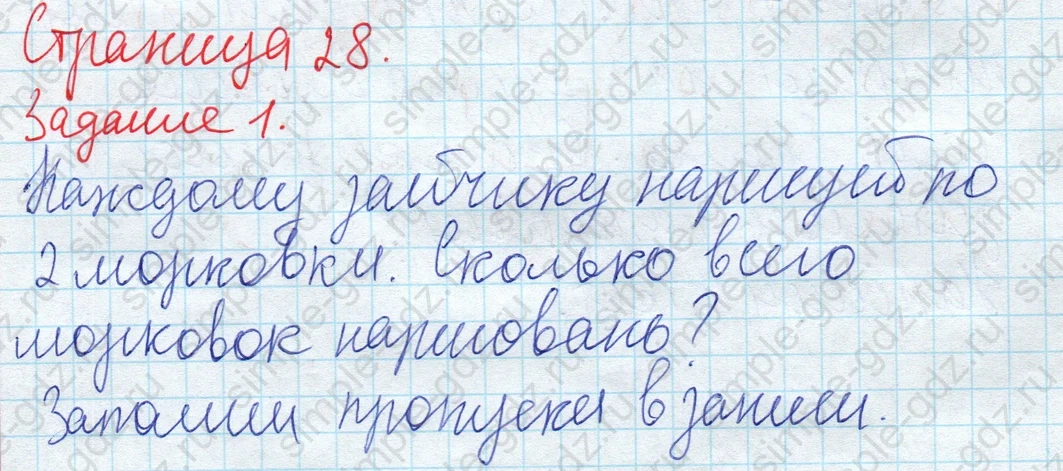 Страница 28.
Задание 1.
Каждому зайчику нарисуй по
2 морковки. Сколько всего
морковок нарисовань?
Заполни пропуски в записи.
simple-gdz.ru